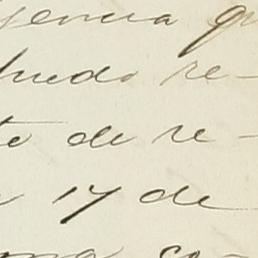 gencia q
puedo re-
te de re-
17 de